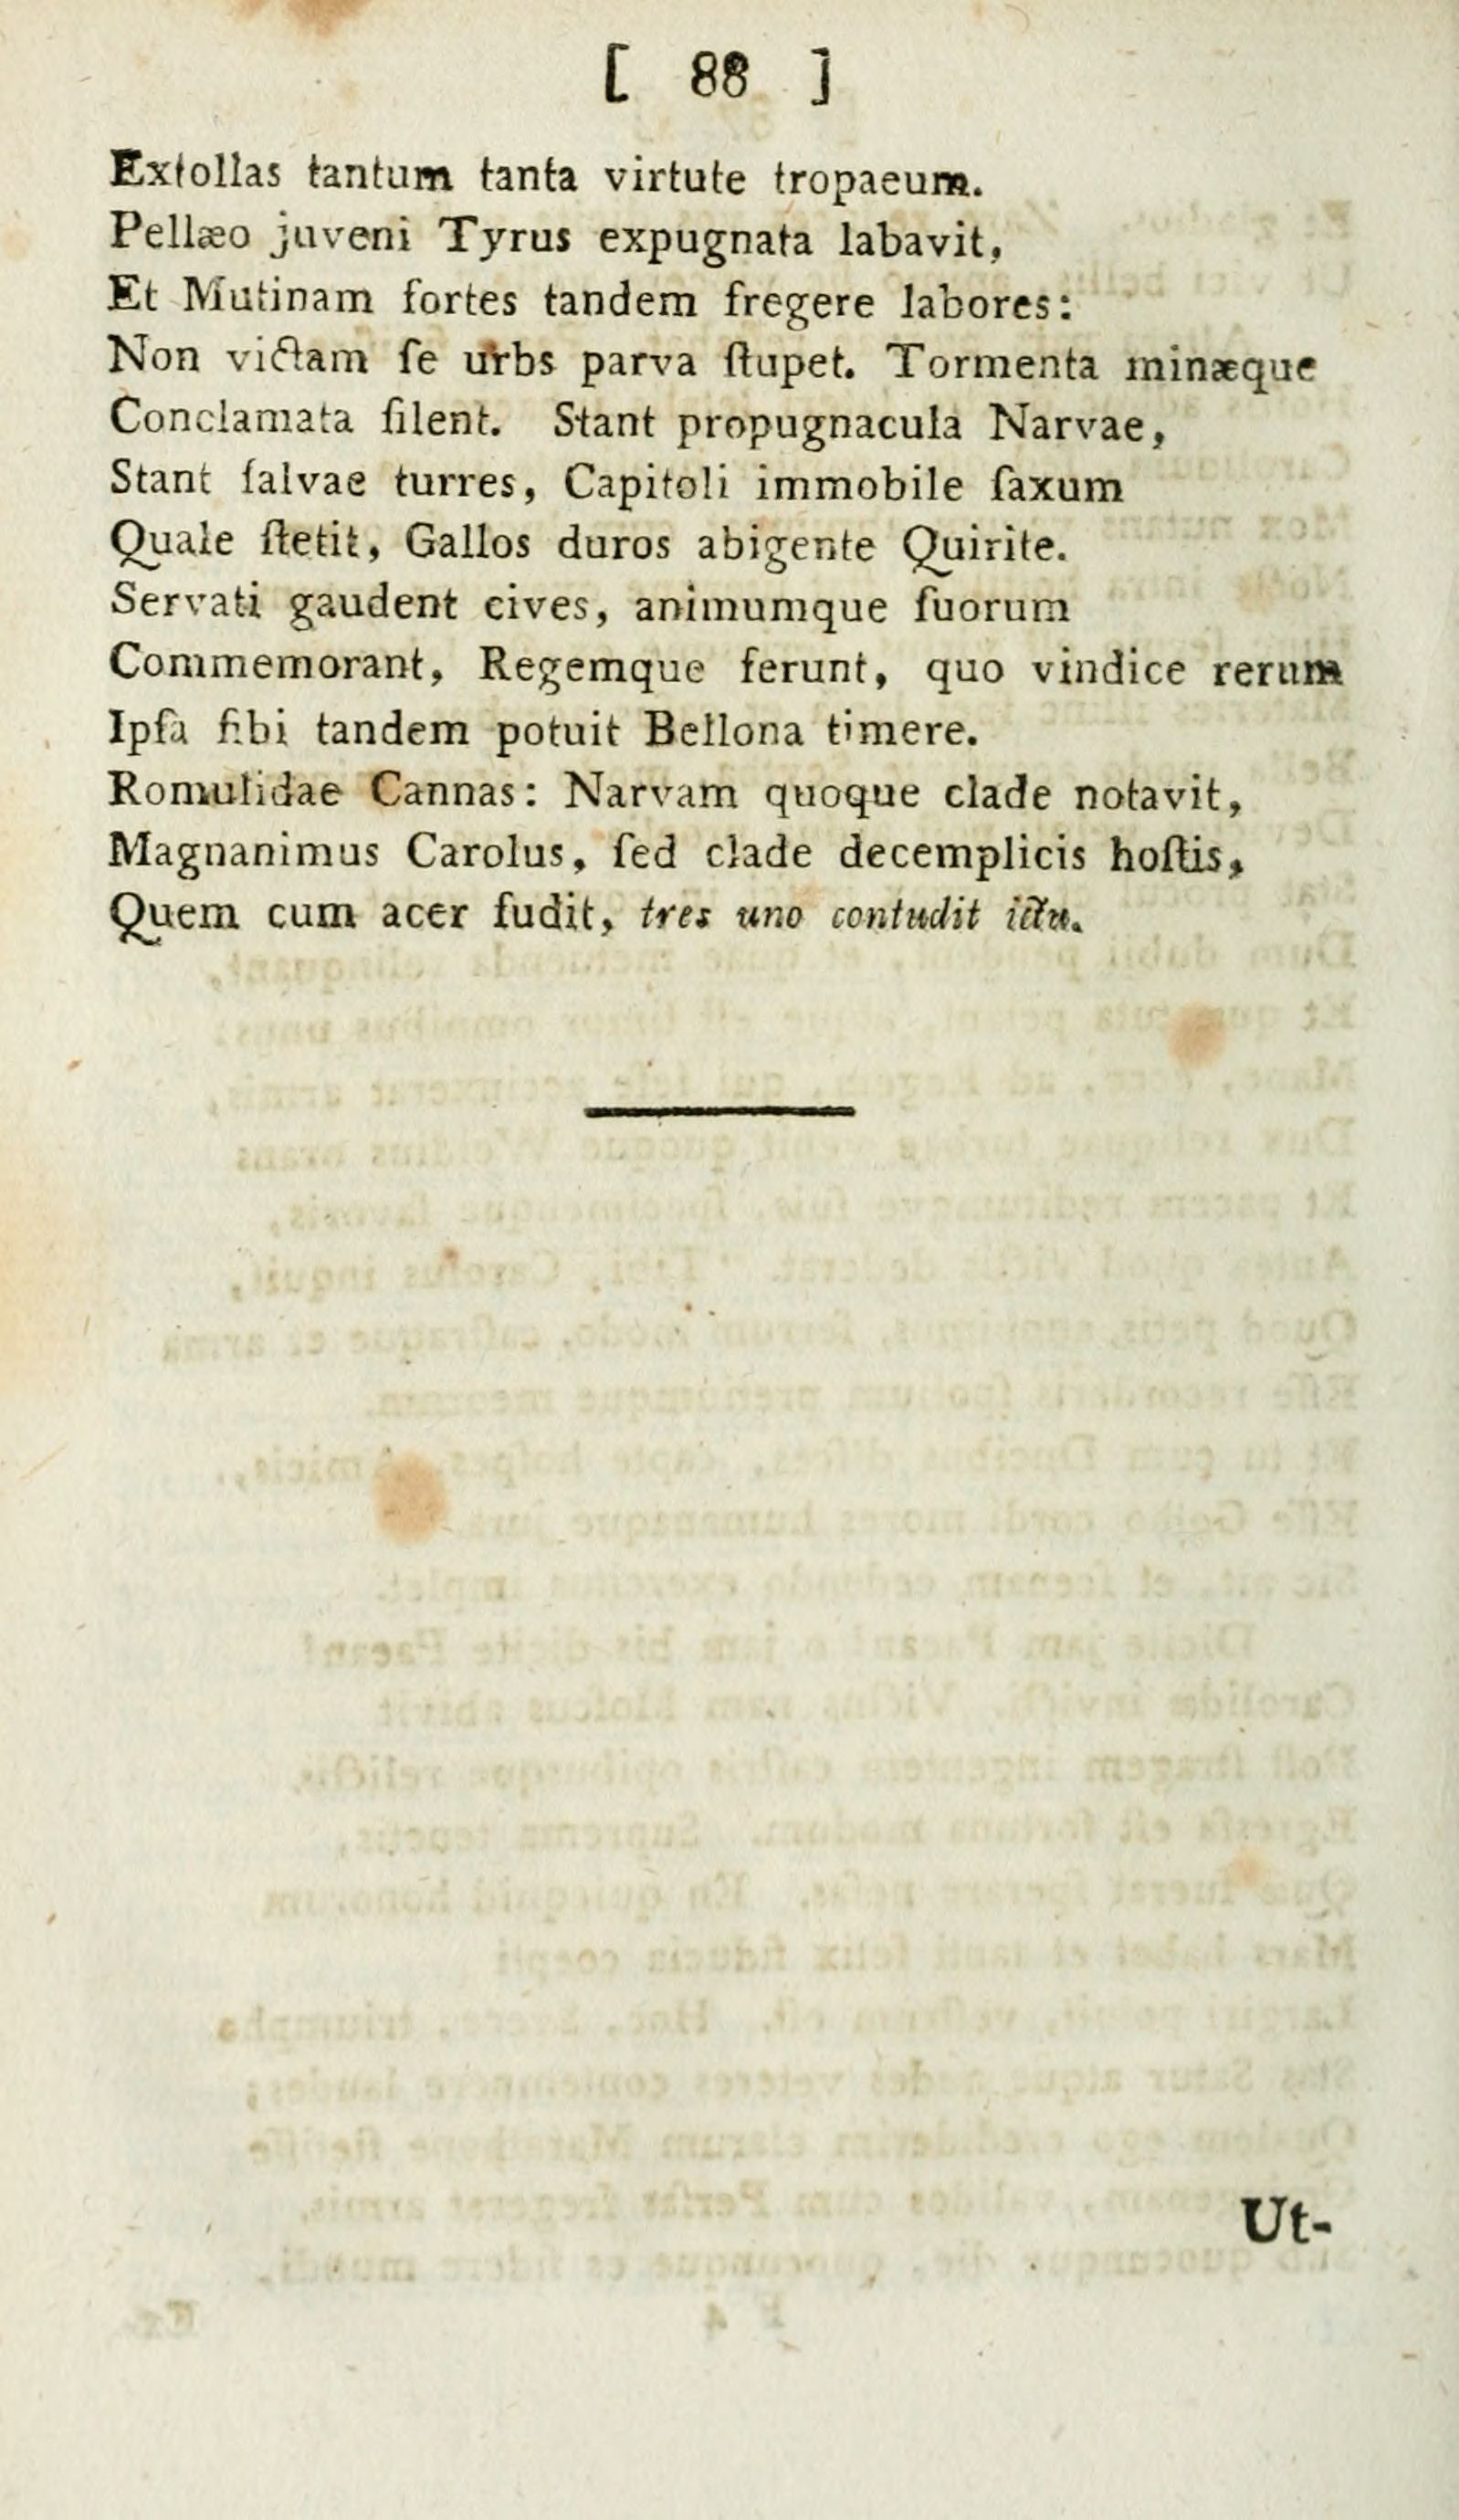 [ 88 ]
Extollas tantum tanta virtute tropaeum.
Pellæo juveni Tyrus expugnata labavit,
Et Mutinam fortes tandem fregere labores:
Non victam ſe urbs parva ſtupet. Tormenta minæque
Conclamata ſilent. Stant propugnacula Narvae,
Stant ſalvae turres, Capitoli immobile ſaxum
Quale ſtetit, Gallos duros abigente Quirite.
Servati gaudent cives, animumque ſuorum
Commemorant, Regemque ferunt, quo vindice rerum
Ipſa ſibi tandem potuit Bellona timere.
Romulidae Cannas: Narvam quoque clade notavit,
Magnanimus Carolus, ſed clade decemplicis hoſtis,
Quem cum acer fudit, tres uno contudit ictu.
Ut-